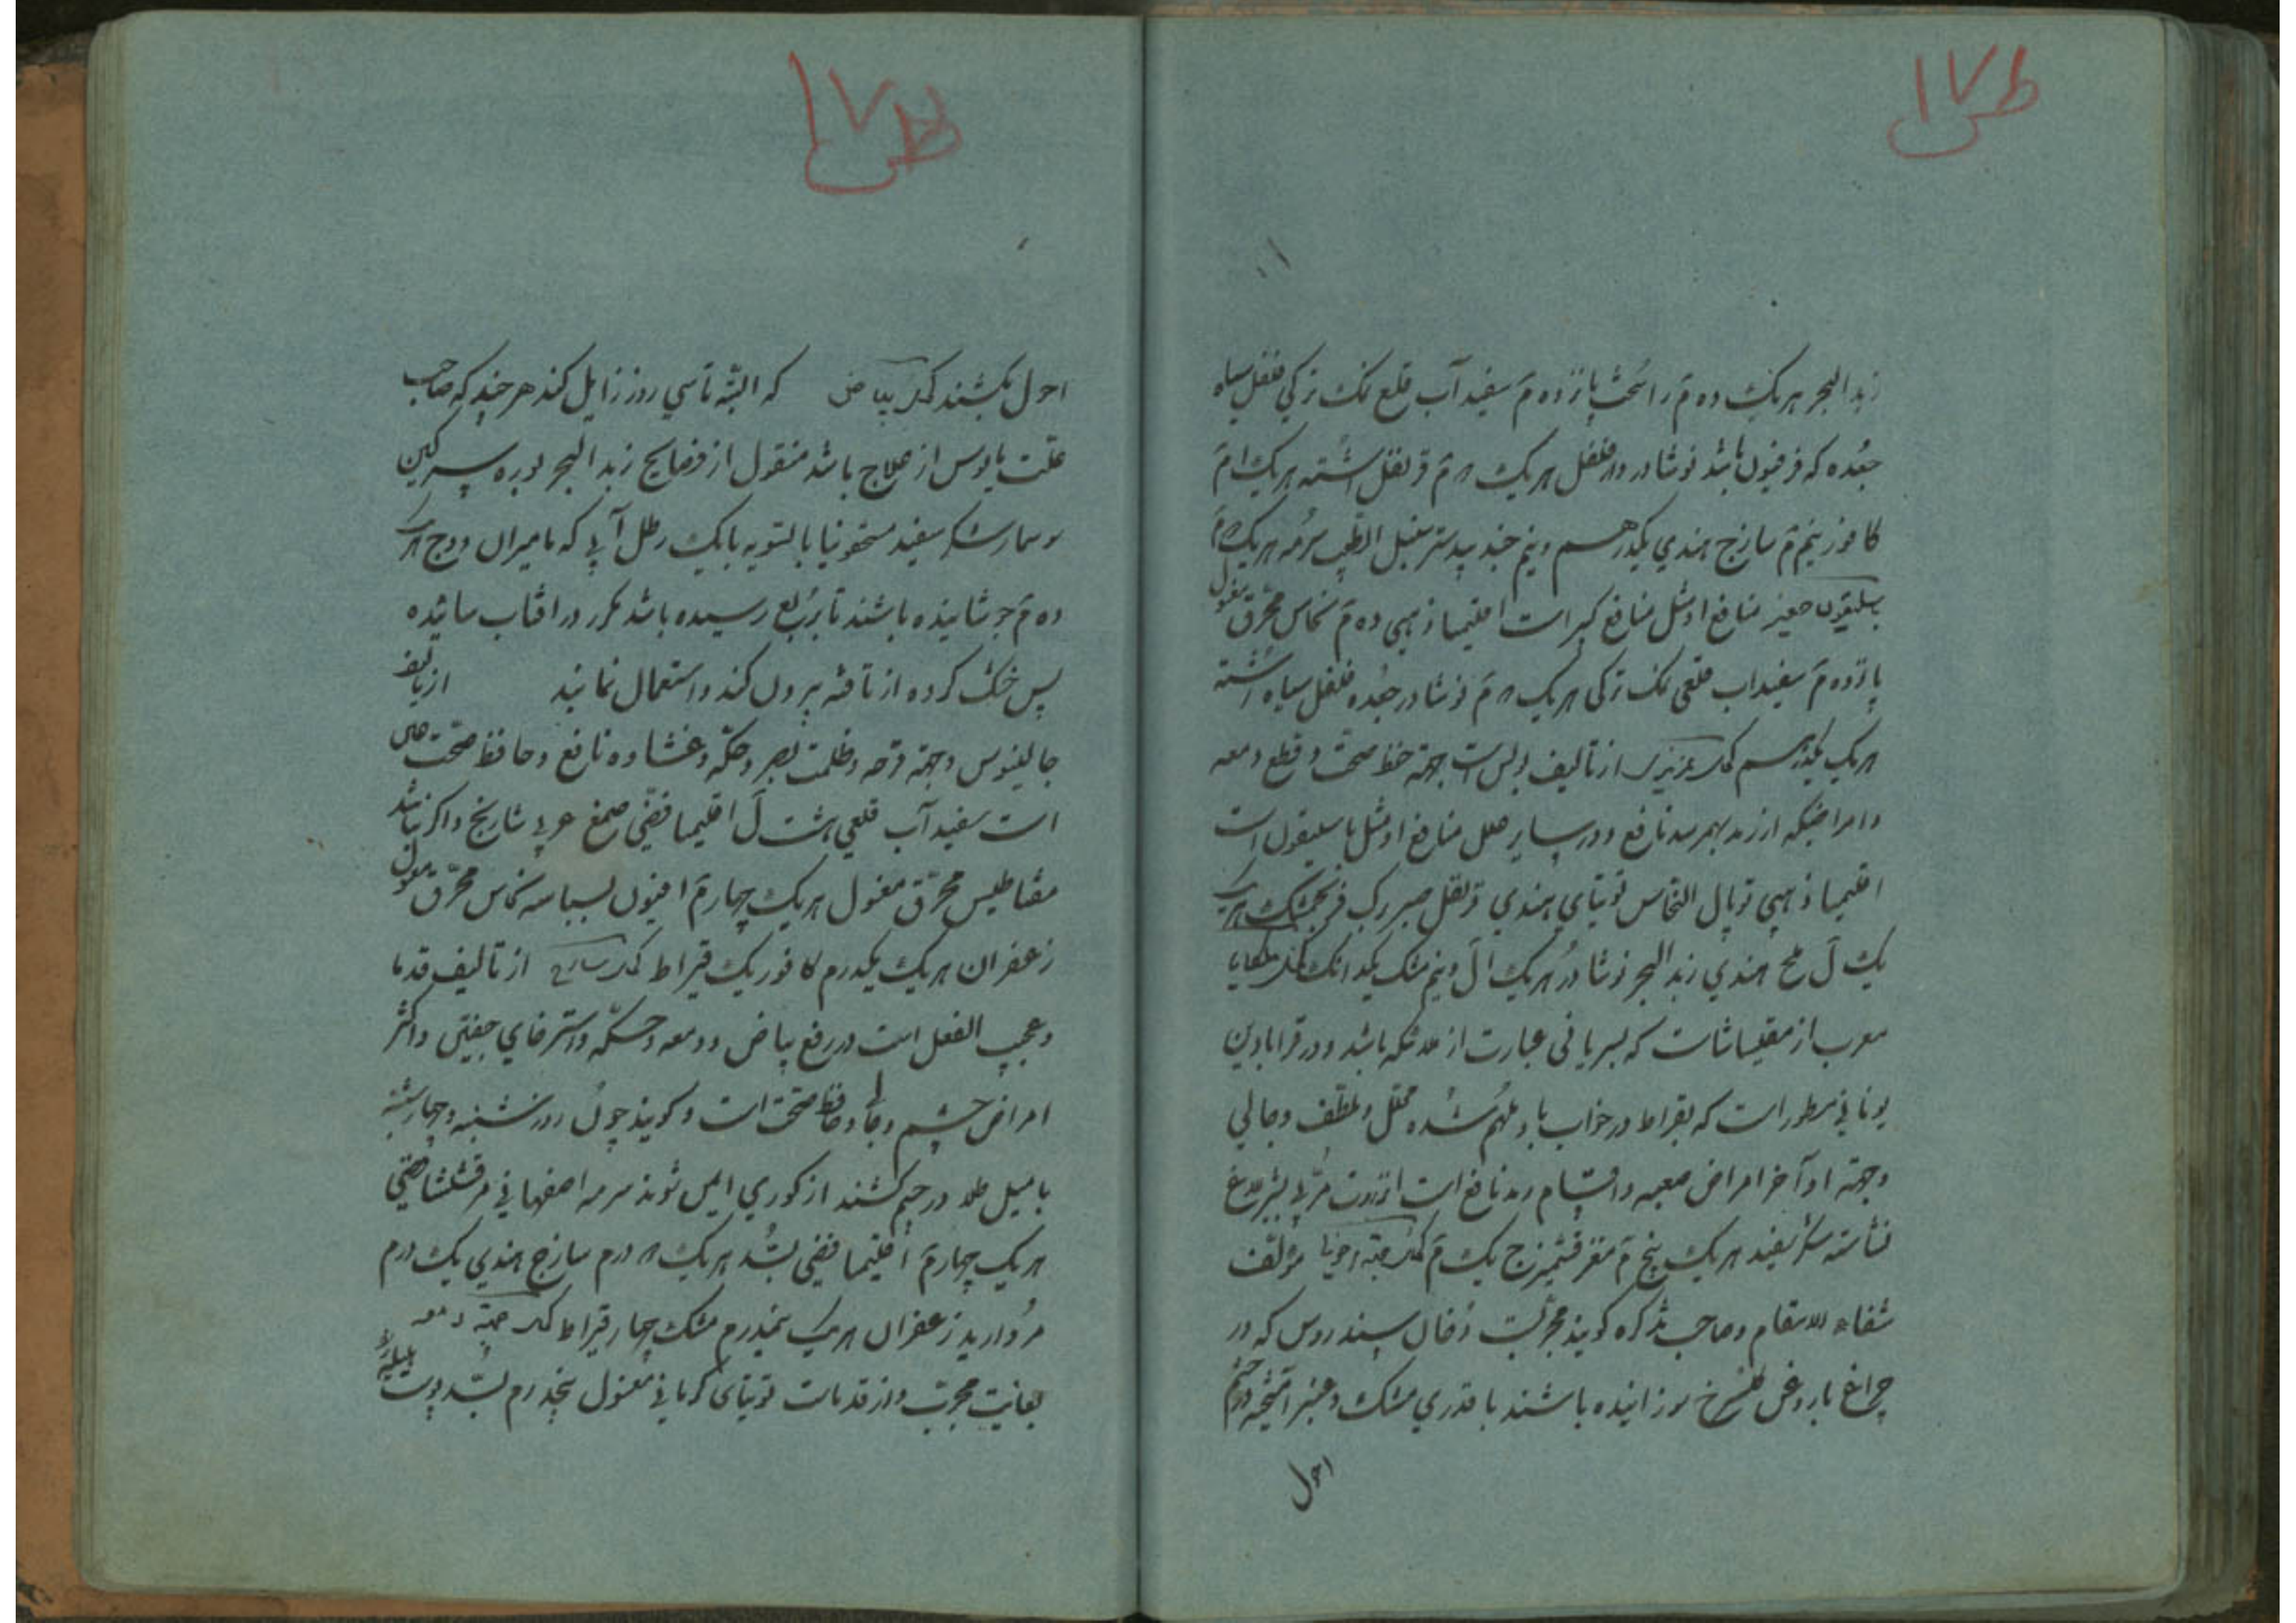 زبد البحر هر یک ده مَ راسُخت پانزده مَ سفید آب قلع نمک ترکی فلفل سیاه
جعُده که فرفیون باشد نوشادر دارفلفل هر یک مَ قرنفل اشنه هر یک مَ
کافور نیم مَ ساذج هندی یکدرهم و نیم جند بیدستر سنبل الطیب سرمه هر یک مَ
باسلیقون صغیر منافع او مثل منافع کبیر است اقلیمیا ذهبی ده مَ نحاس محرّق مغسول
پانزده مَ سفیداب قلعی نمک ترکی هر یک مَ نوشادر جعُده فلفل سیاه اشنه
هر یک یکدرهم کحل عزیزی از تألیف بولس است جهة حفظ صحت و قطع دمعه
و امراضیکه از رمد بهم رسد نافع و در سایر علل منافع او مثل باسلیقون است
اقلیمیا ذهبی توبال النحاس توتیای هندی قرنفل صبر برگ فرنجمشک هر یک
یک لَ ملح هندی زبد البحر نوشادر هر یک لَ و نیم مشک یکدانک کحل ملکایا
معرب از مقلیاثا است که بسریانی عبارت از ملائکه باشد و در قرابادین
یونانی مسطور است که بقراط در خواب باو ملهم شده محلل و ملطف و جالی
و جهة اواخر امراض صعبه و اقسام رمد نافع است انزروت مربی بشیر الاغ
نشاسته سکر سفید هر یک پنج مَ مغز چشمیزج یک مَ کحل جهة مؤلف
شفاء الاسقام و صاحب تذکره گویند مجربست دخان سندروس که در
چراغ با روغن سوزانیده باشند با قدری مشک و عنبر آمیخته در چشم
احول
احول بکشند کحل بیاض که البته تا سی روز زایل کند هر چند که صاحب
علت مایوس از علاج باشد منقول از زبد البحر بوره سرگین
سوسمار شکر سفید سقمونیا بالسویه با یک رطل آبی که مامیران و وج هر یک
ده مَ جوشانیده باشند تا بربع رسیده باشد مکرر در آفتاب سائیده
پس خشک کرده از تافته بیرون کنند و استعمال نمایند از تالیف
جالینوس و جهة قرحه و ظلمت بصر و حکّه و غشاوه نافع و حافظ صحّت
است سفید آب قلعی هشت لَ اقلیمیا فضّی صمغ عربی شادنج و اگر نباشد
مقناطیس محرّق مغسول هر یک چهار مَ افیون بسباسه نحاس محرّق مغسول
زعفران هر یک یکدرم کافور یک قیراط کحل از تألیف قدما
و عجیب الفعل است در رفع بیاض و دمعه و حکّه و استرخای جفنین و اکثر
امراض چشم و جالی و حافظ صحّت است و گویند چون روز شنبه و چهارشنبه
با میل طلا در چشم کشند از کوری ایمن شوند سرمه اصفهانی مرقشیشا فضی
هر یک چهار مَ اقلیمیا فضی بسُد هر یک درم ساذج هندی یک درم
مروارید زعفران هر یک نیمدرم مشک چهار قیراط کحل جهة دمعه
بغایت مجربّ و از قدماست توتیای کرمانی مغسول پنجدرم بسُد پوست هلیله زرد